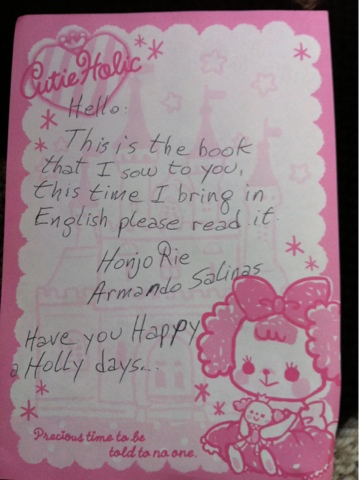 Cutie Holic
Hello.
This is the book
that I sow to you,
this time I bring in
English please read it.
Honjo Rie
Armando Salinas
Have you Happy
a Holly days...
Precious time to be
told to no one.